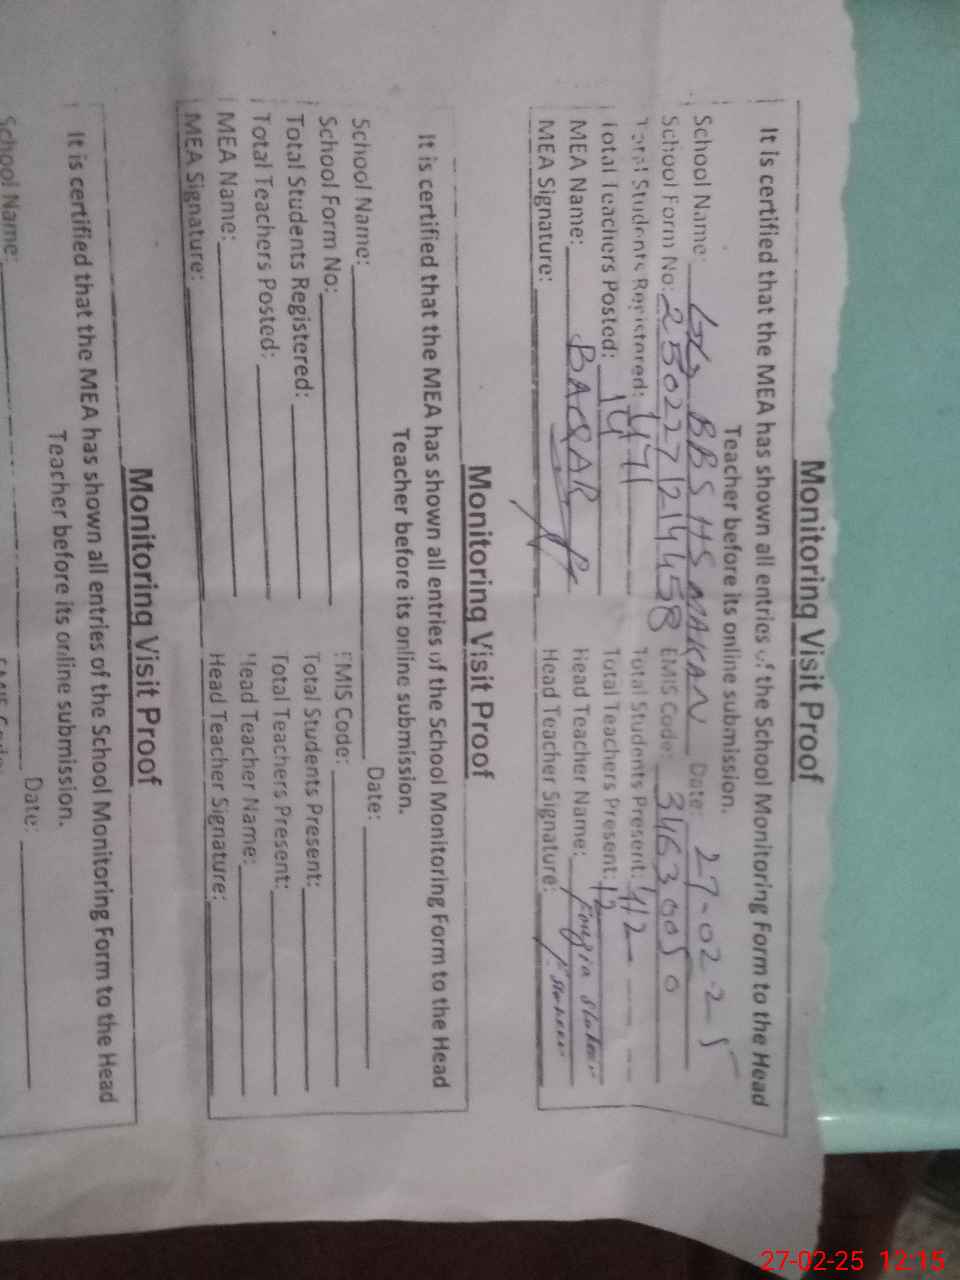 Monitoring Visit Proof
It is certified that the MEA has shown all entries of the School Monitoring Form to the Head
Teacher before its online submission.
School Name: BBS HS MAKAN Date: 27-02-25
School Form No: 2502271214458 EMIS Code: 34630050
Total Students Registered: 471 Total Students Present: 412
Total Teachers Posted: 14 Total Teachers Present: 12
MEA Name: Head Teacher Name: Fouzia
MEA Signature: Head Teacher Signature:
Monitoring Visit Proof
It is certified that the MEA has shown all entries of the School Monitoring Form to the Head
Teacher before its online submission.
School Name: Date:
School Form No: EMIS Code:
Total Students Registered: Total Students Present:
Total Teachers Posted: Total Teachers Present:
MEA Name: Head Teacher Name:
MEA Signature: Head Teacher Signature:
Monitoring Visit Proof
It is certified that the MEA has shown all entries of the School Monitoring Form to the Head
Teacher before its online submission.
School Name: Date:
27-02-25 12:15